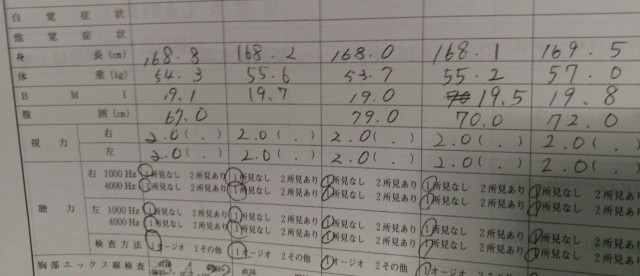 自覚症状
他覚症状
身長(cm) 168.8 168.2 168.0 168.1 169.5
体重(kg) 54.3 55.6 53.7 55.2 57.0
BMI 19.1 19.7 19.0 19.5 19.8
腹囲(cm) 67.0 79.0 70.0 72.0
視力 右 2.0( . ) 2.0( . ) 2.0( . ) 2.0( . ) 2.0( . )
左 2.0( . ) 2.0( . ) 2.0( . ) 2.0( . ) 2.0(
聴力 右 1000 Hz 1所見なし 2所見あり 1所見なし 2所見あり 1所見なし 2所見あり 1所見なし 2所見あり 1所見なし
4000 Hz 1所見なし 2所見あり 1所見なし 2所見あり 1所見なし 2所見あり 1所見なし 2所見あり 1所見なし
左 1000 Hz 1所見なし 2所見あり 1所見なし 2所見あり 1所見なし 2所見あり 1所見なし 2所見あり 1所見なし
4000 Hz 1所見なし 2所見あり 1所見なし 2所見あり 1所見なし 2所見あり 1所見なし 2所見あり 1所見なし
検査方法 1オージオ 2その他 1オージオ 2その他 1オージオ 2その他 1オージオ 2その他 1オージオ
胸部エックス線検査 直接